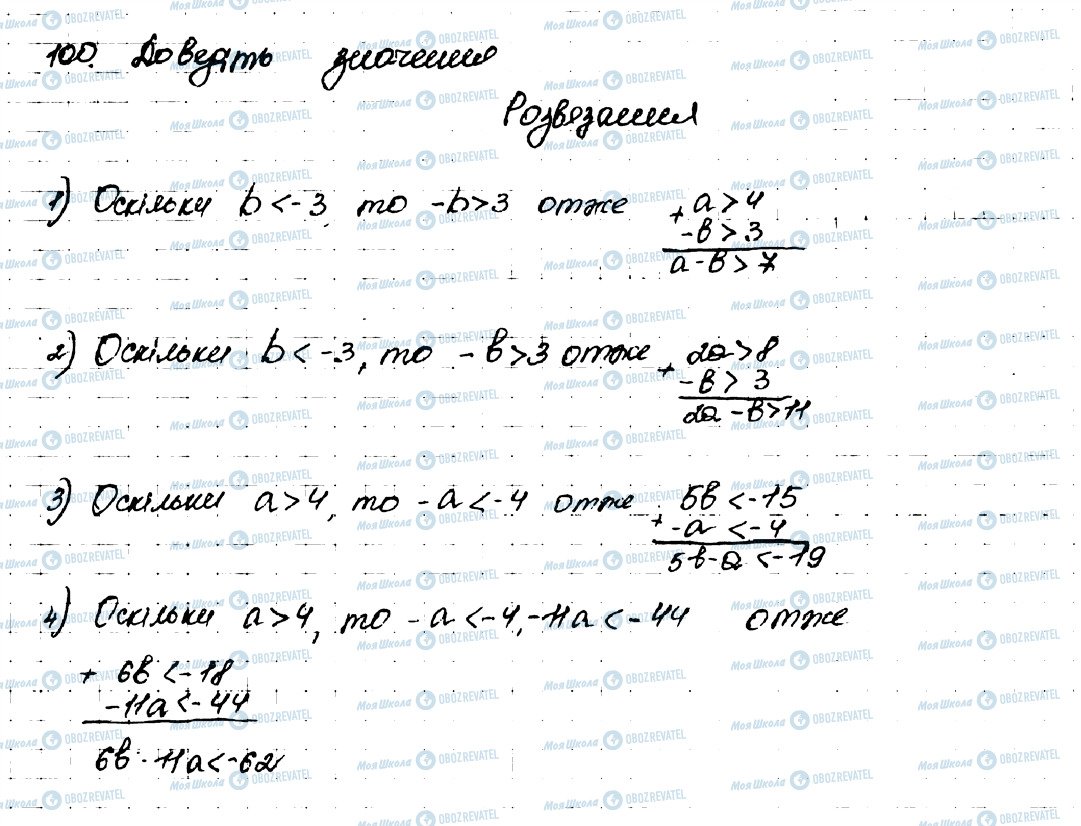 100. Доведіть значення
Розвязання
1) Оскільки b < -3 то -b > 3 отже + a > 4
-b > 3
a - b > 7
2) Оскільки b < -3, то -b > 3 отже + 2a > 8
-b > 3
2a - b > 11
3) Оскільки a > 4, то -a < -4 отже + 5b < -15
-a < -4
5b - a < -19
4) Оскільки a > 4, то -a < -4, -11a < -44 отже
+ 6b < -18
-11a < -44
6b - 11a < -62